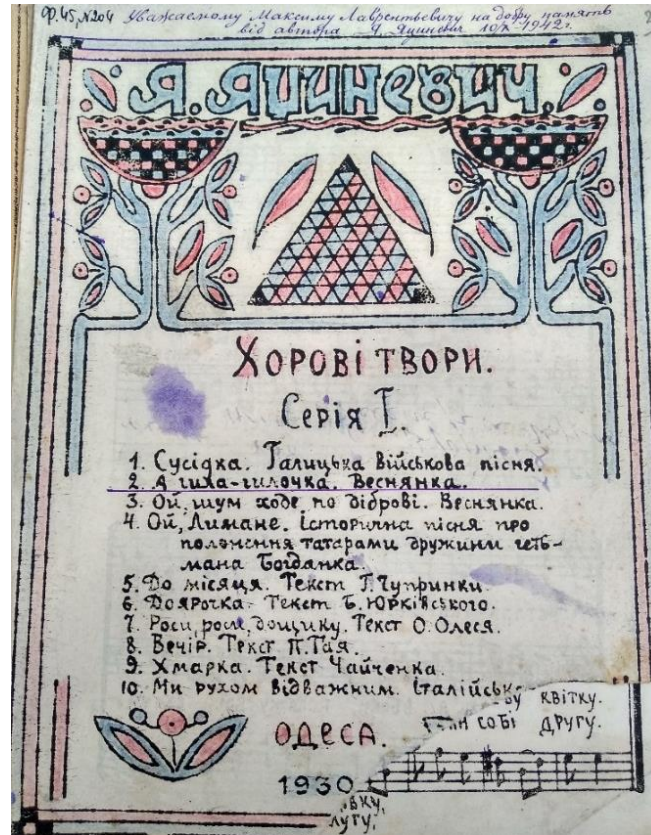 Ф.45, №204 Уважаемому Максиму Лаврентьевичу на добру память
від автора Я. Яциневич 1942г.
Я. ЯЦИНЕВИЧ.
ХОРОВІ ТВОРИ.
СЕРІЯ I.
1. Сусідка. Галицька військова пісня.
2. А гила-гилочка. Веснянка.
3. Ой, шум ходе по діброві. Веснянка.
4. Ой, Лимане. Історична пісня про
полонення татарами дружини геть-
мана Богданка.
5. До місяця. Текст Г. Чупринки.
6. Доярочка. Текст Б. Юрківського.
7. Роси, роси, дощику. Текст О. Олеся.
8. Вечір. Текст П. Тая.
9. Хмарка. Текст Чайченка.
10. Ми рухом відважним. Італійськ
КВІТКУ.
СОБІ ДРУГУ.
ОДЕСА.
1930